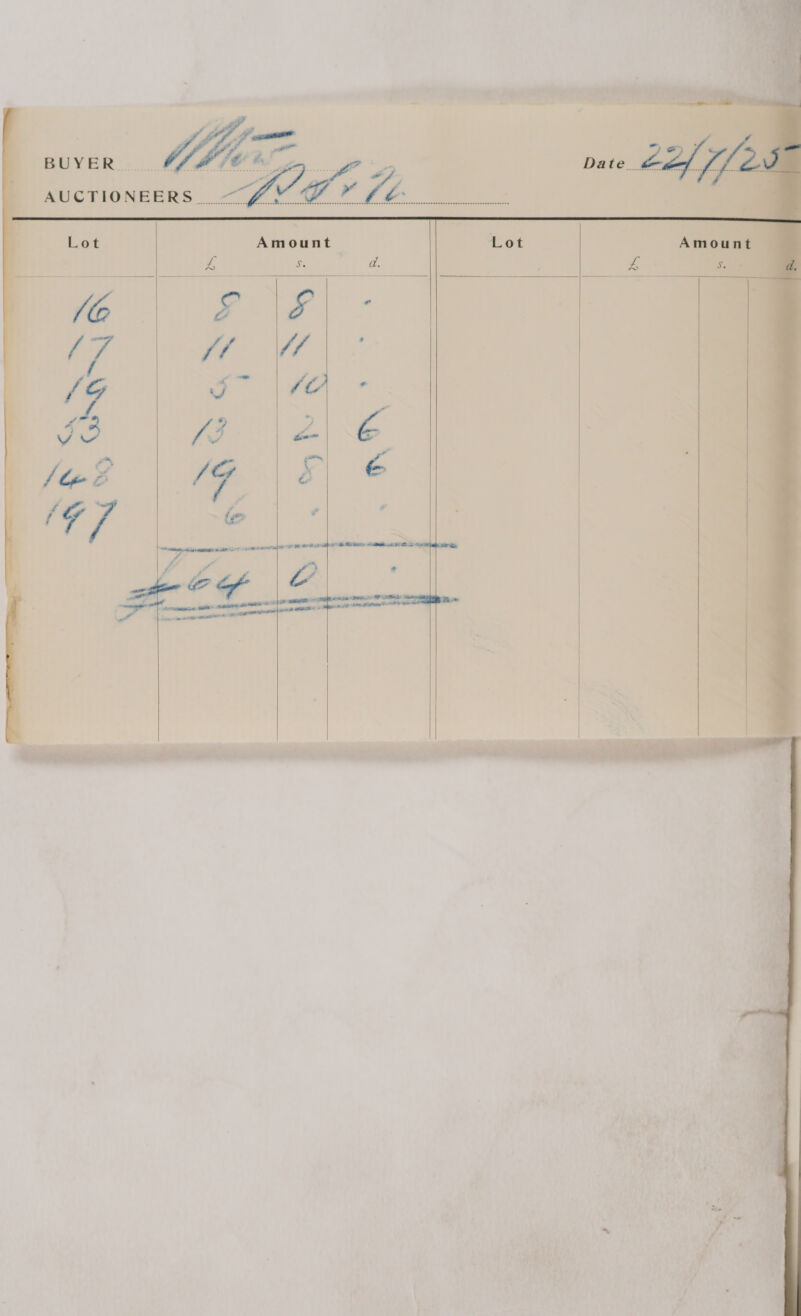 BUYER Date 22/7/25
AUCTIONEERS
Lot Amount Lot Amount
£ s. d. £ s. d.
16 8 8 -
17 11 11 -
19 5 10 -
53 13 2 6
148 19 8 6
197 6 - -
£64 0 -